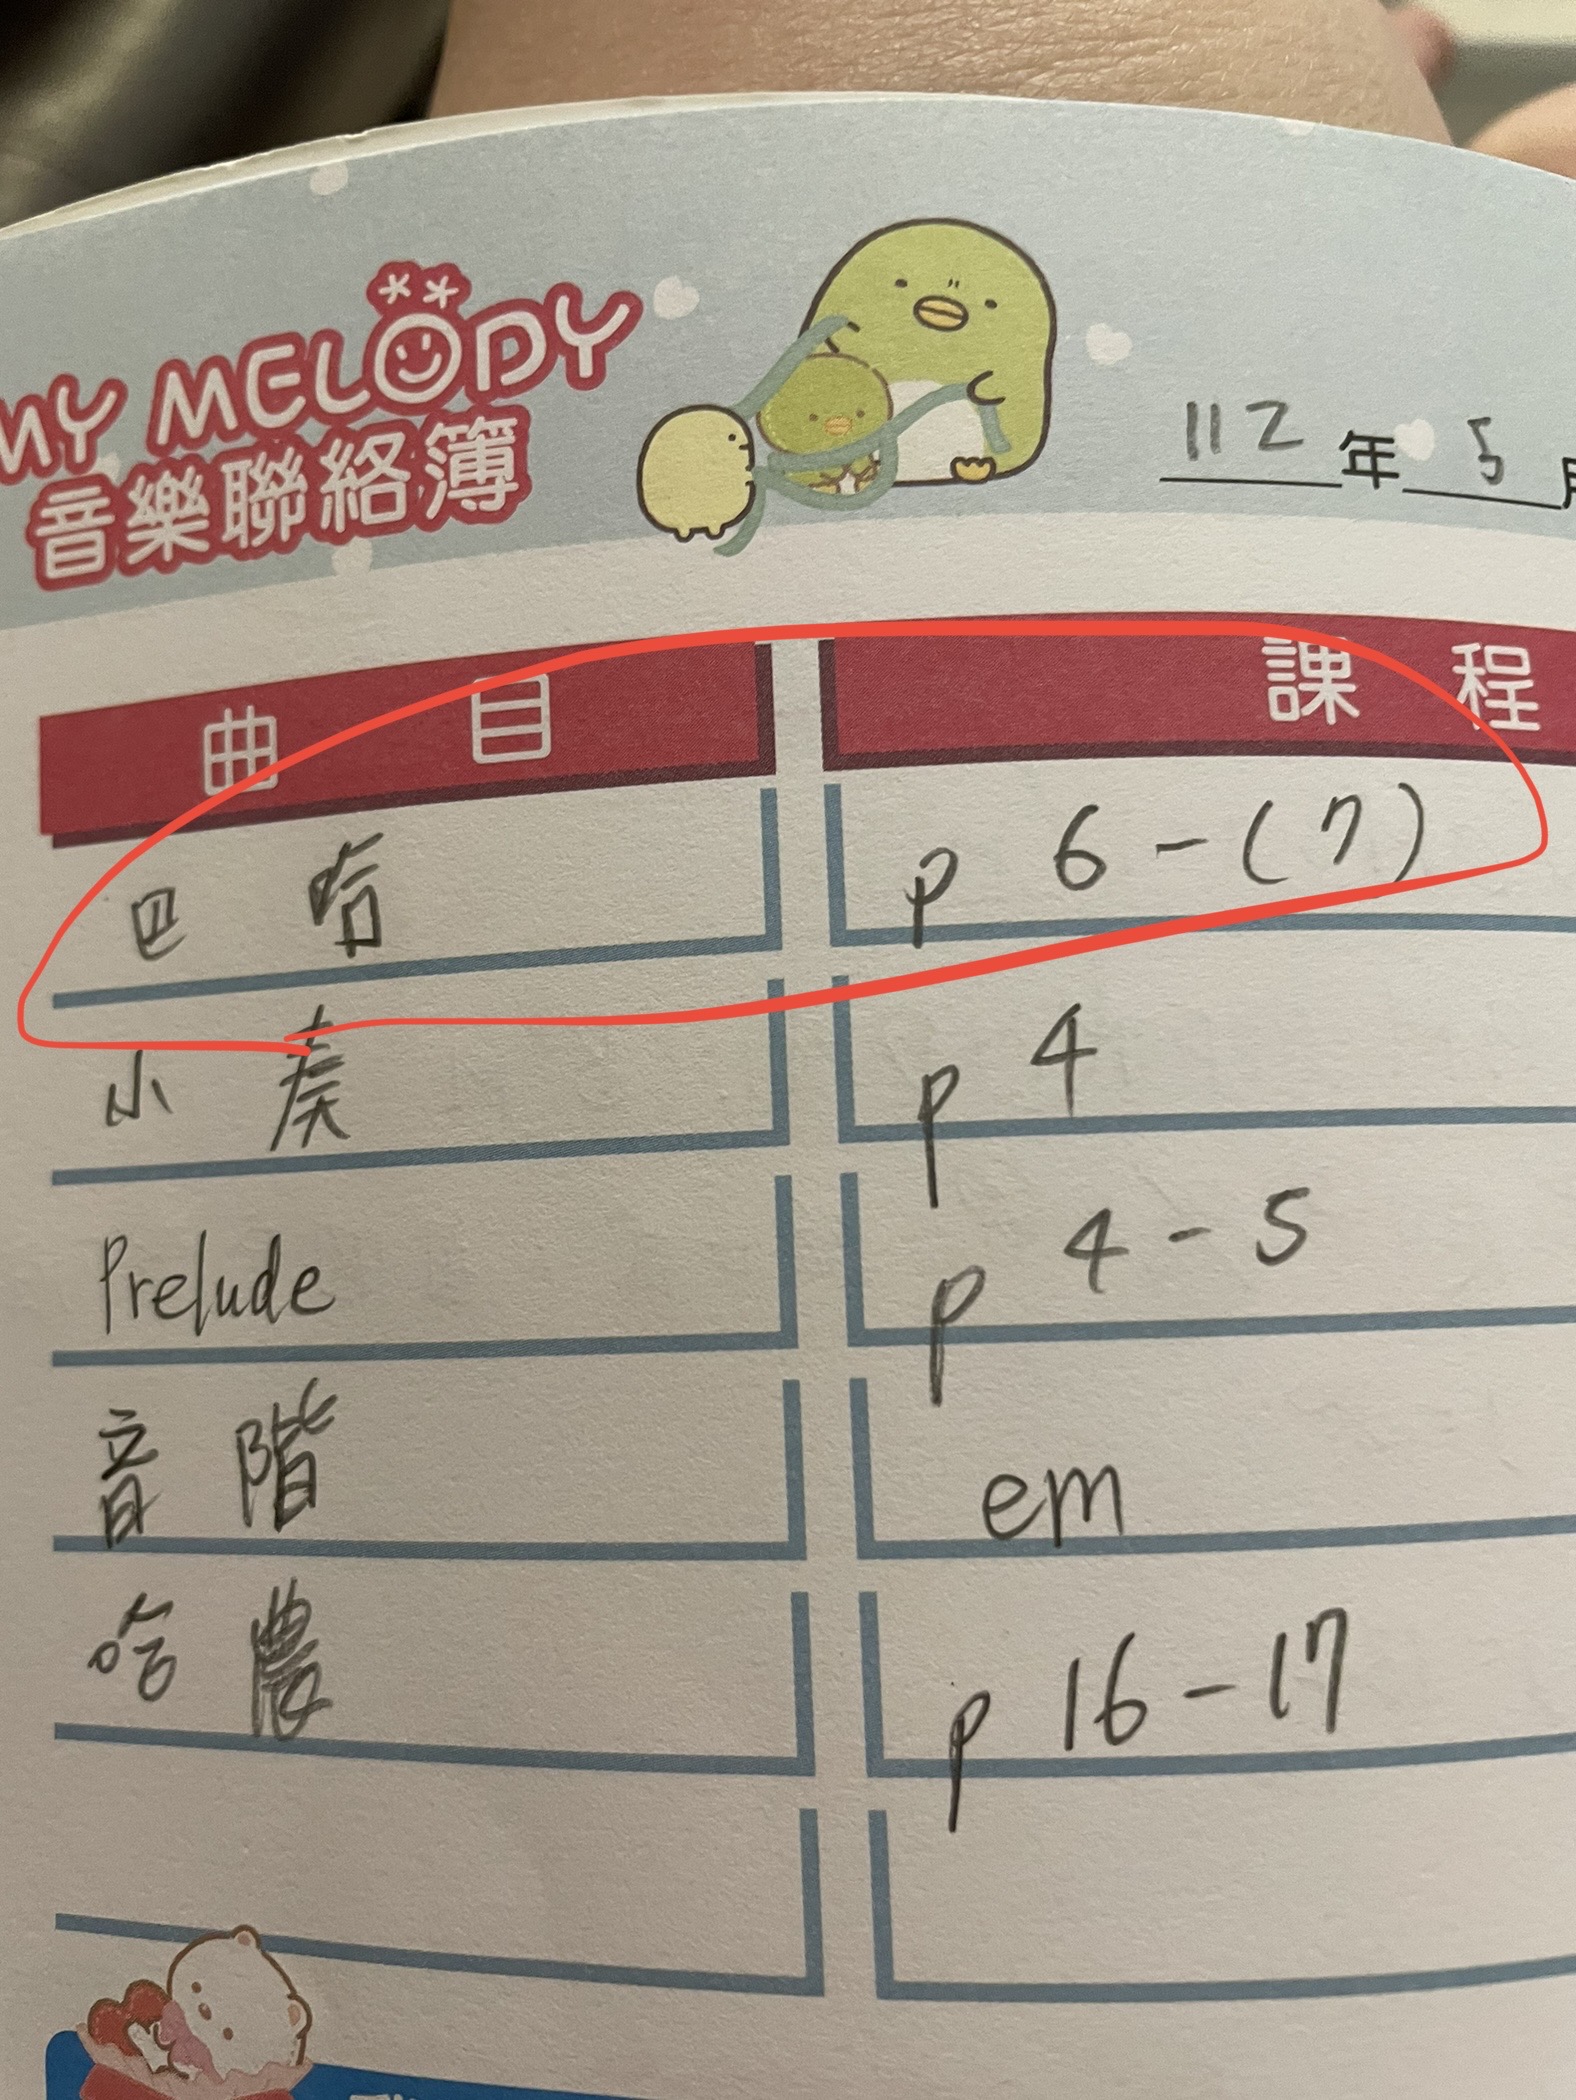 MY MELODY
音樂聯絡簿
112年5月
曲目 課程
巴哈 p 6-(7)
小奏 p 4
Prelude p 4-5
音階 em
哈農 p 16-17